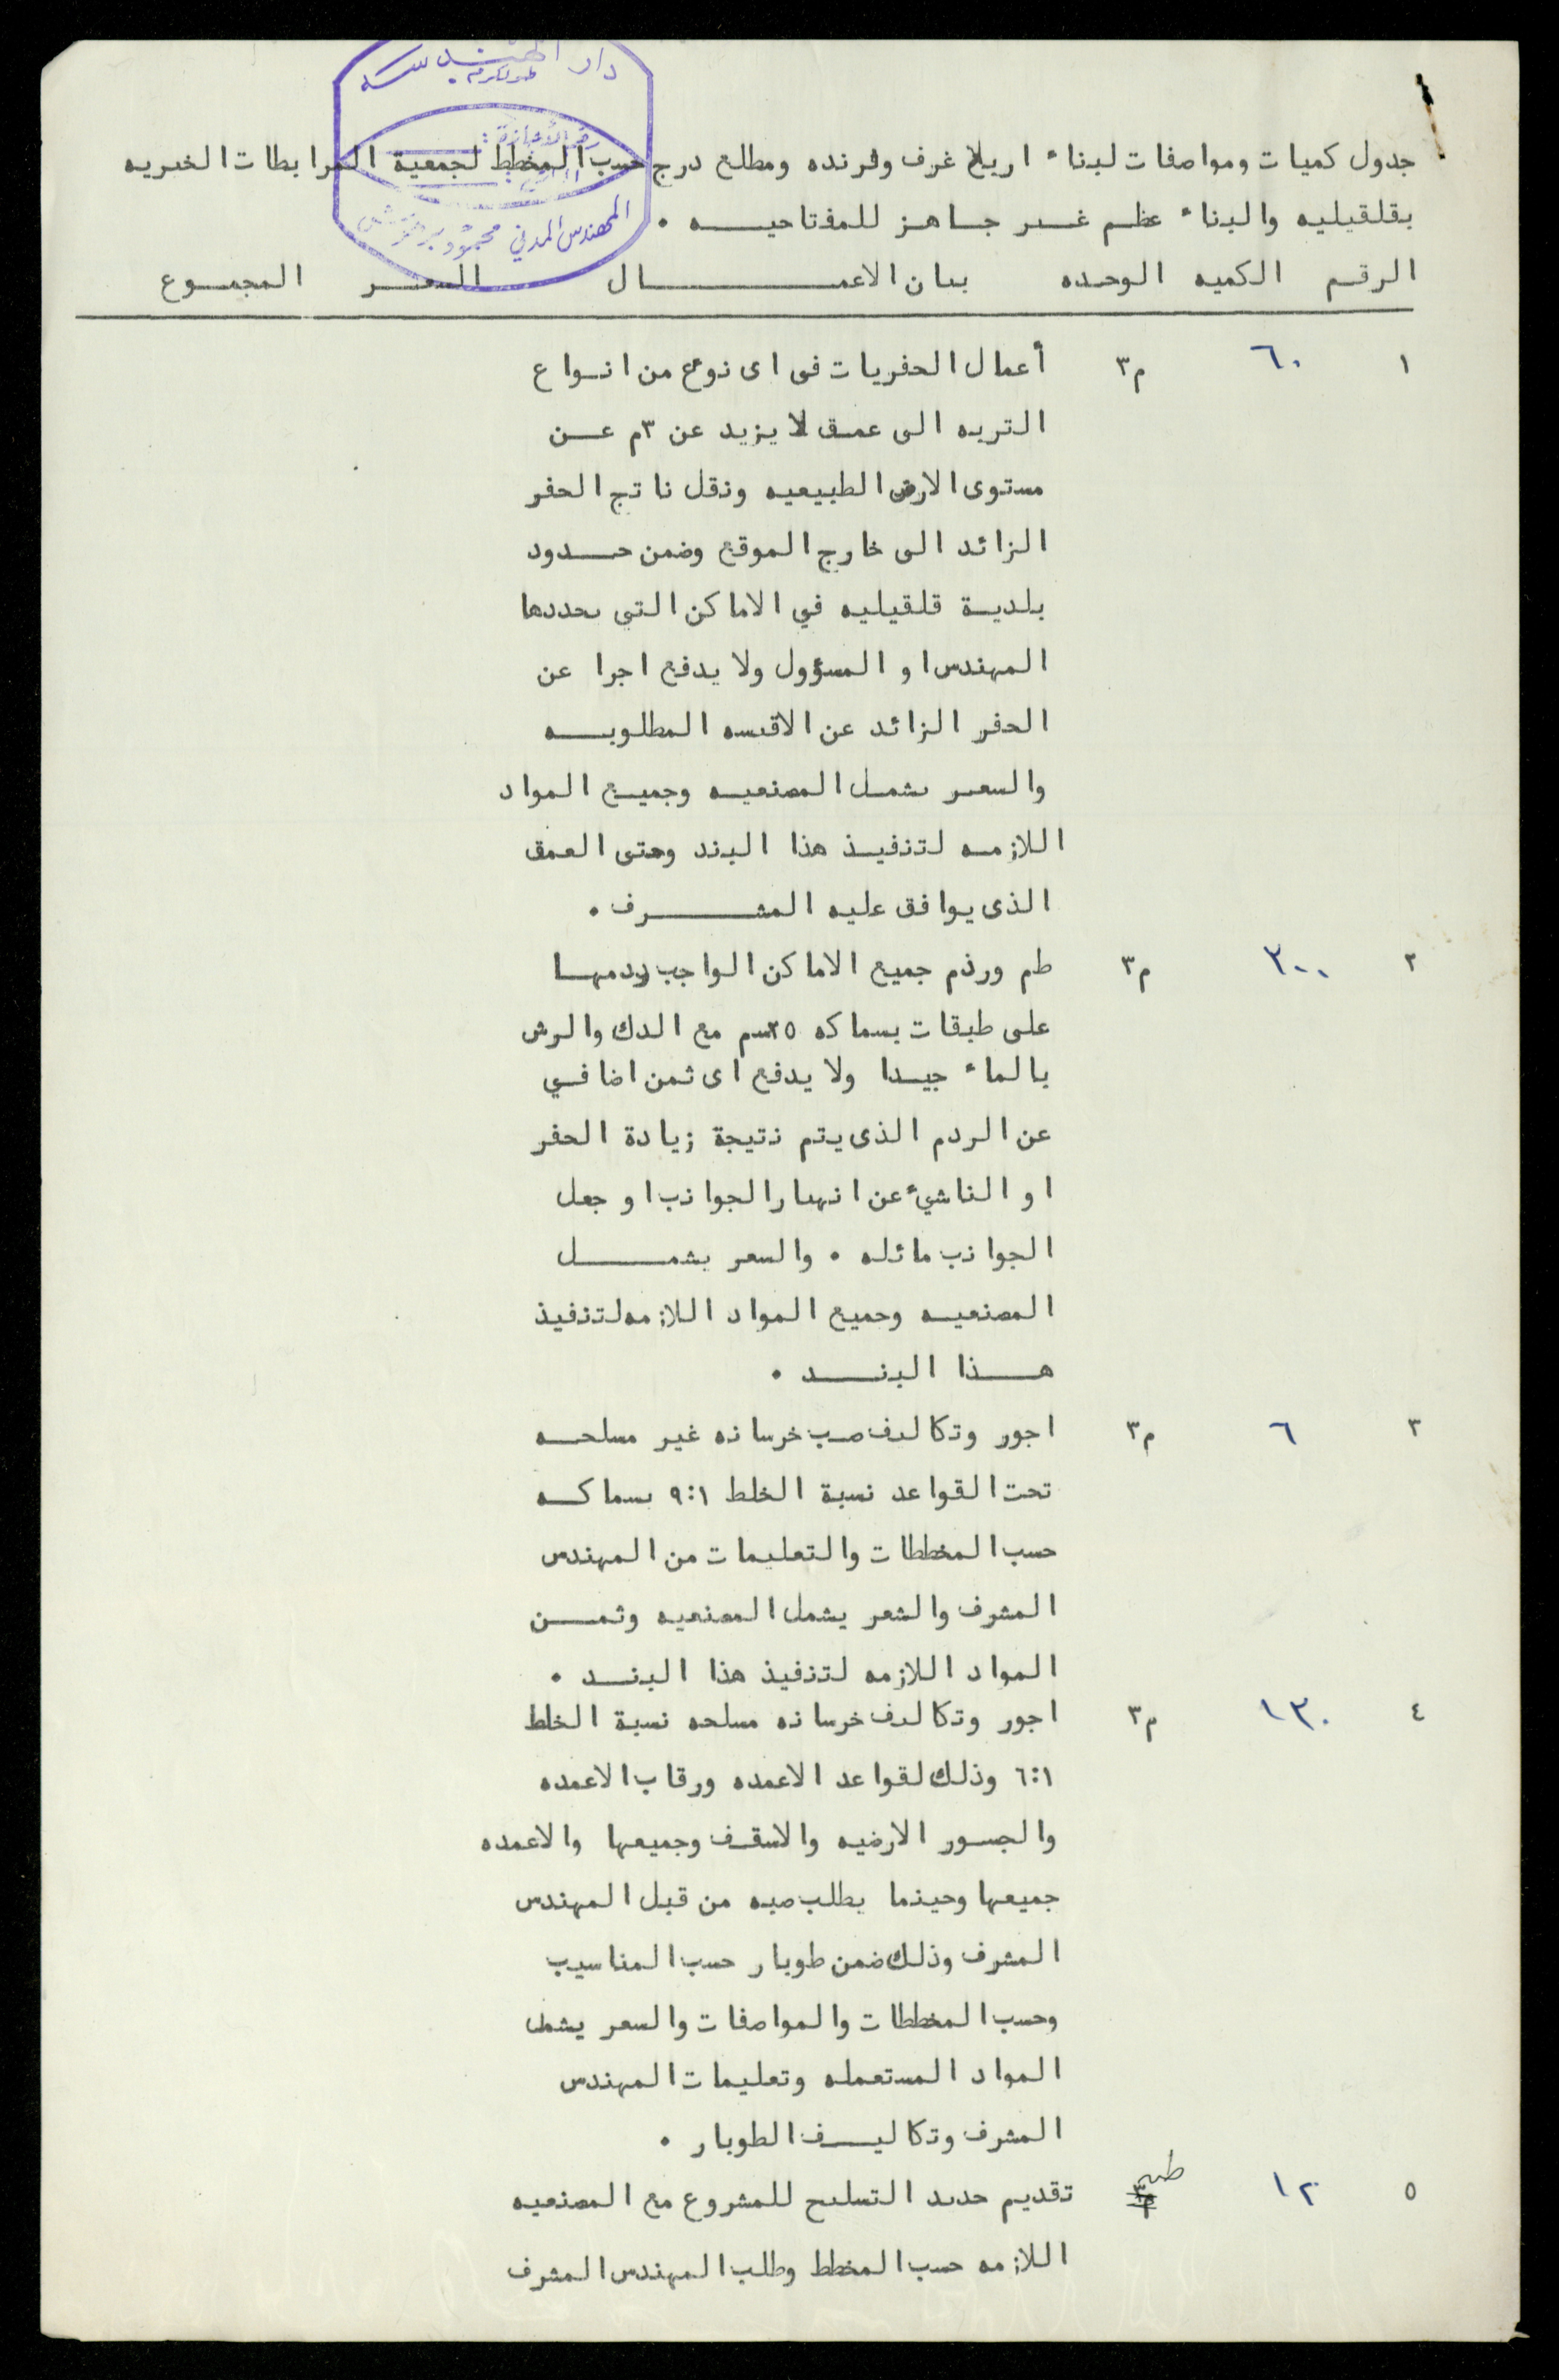 دار الهندسه
طولكرم
رقم الأجازة :
المهندس المدني محمود
جدول كميات ومواصفات لبناء اربع غرف وفرنده ومطلع درج حسب المخطط لجمعية المرابطات الخيريه
بقلقيليه والبناء عظم غير جاهز للمفتاحيه .
الرقم الكميه الوحده بيان الاعمال السعر المجموع
١ ٦٠ م٣ أعمال الحفريات فى اى نوع من انواع
التربه الى عمق لا يزيد عن ٣م عن
مستوى الارض الطبيعيه ونقل ناتج الحفر
الزائد الى خارج الموقع وضمن حدود
بلدية قلقيليه في الاماكن التى يحددها
المهندس او المسؤول ولا يدفع اجرا عن
الحفر الزائد عن الاقيسه المطلوبه
والسعر يشمل المصنعيه وجميع المواد
اللازمه لتنفيذ هذا البند وحتى العمق
الذى يوافق عليه المشرف .
٢ ٢٠٠ م٣ طم وردم جميع الاماكن الواجب ردمها
على طبقات بسماكه ٢٥سم مع الدك والرش
بالماء جيدا ولا يدفع اى ثمن اضافي
عن الردم الذى يتم نتيجة زيادة الحفر
او الناشيء عن انهيار الجوانب او جعل
الجوانب مائله . والسعر يشمل
المصنعيه وجميع المواد اللازمه لتنفيذ
هذا البند .
٣ ٦ م٣ اجور وتكاليف صب خرسانه غير مسلحه
تحت القواعد نسبة الخلط ٩:١ بسماكه
حسب المخططات والتعليمات من المهندس
المشرف والشعر يشمل المصنعيه وثمن
المواد اللازمه لتنفيذ هذا البند .
٤ ١٣٠ م٣ اجور وتكاليف خرسانه مسلحه نسبة الخلط
٦:١ وذلك لقواعد الاعمده ورقاب الاعمده
والجسور الارضيه والاسقف وجميعها والاعمده
جميعها وحينما يطلب صبه من قبل المهندس
المشرف وذلك ضمن طوبار حسب المناسيب
وحسب المخططات والمواصفات والسعر يشمل
المواد المستعمله وتعليمات المهندس
المشرف وتكاليف الطوبار .
٥ ١٢ طن م٣ تقديم حديد التسليح للمشروع مع المصنعيه
اللازمه حسب المخطط وطلب المهندس المشرف